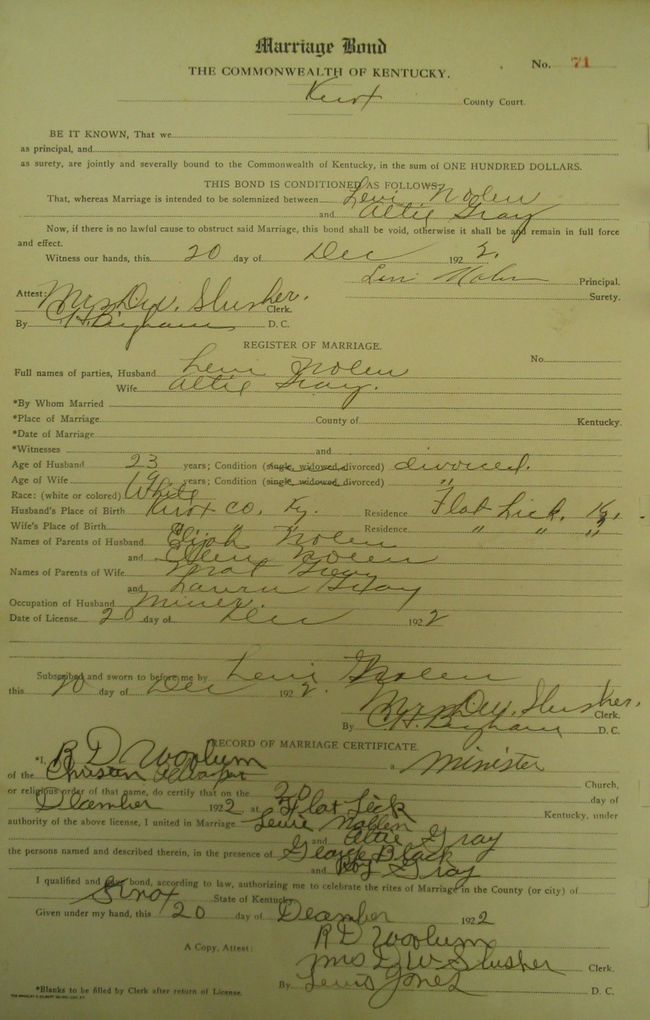 Marriage Bond
THE COMMONWEALTH OF KENTUCKY.
No. 71
Knox County Court.
BE IT KNOWN, That we
as principal, and
as surety, are jointly and severally bound to the Commonwealth of Kentucky, in the sum of ONE HUNDRED DOLLARS.
THIS BOND IS CONDITIONED AS FOLLOWS:
That, whereas Marriage is intended to be solemnized between Levi Nolen
and Altie Gray
Now, if there is no lawful cause to obstruct said Marriage, this bond shall be void, otherwise it shall be and remain in full force
and effect.
Witness our hands, this 20 day of Dec 1922.
Levi Nolen Principal.
Surety.
Attest: Mrs. D.W. Slusher. Clerk.
By C.H. Bingham D. C.
REGISTER OF MARRIAGE.
No.
Full names of parties, Husband Levi Nolen
Wife Altie Gray.
*By Whom Married
*Place of Marriage County of Kentucky.
*Date of Marriage
*Witnesses and
Age of Husband 23 years; Condition (single, widowed, divorced) divorced.
Age of Wife 19 years; Condition (single, widowed, divorced) "
Race: (white or colored) White
Husband's Place of Birth Knox Co. Ky. Residence Flat Lick, Ky.
Wife's Place of Birth " " Residence " " "
Names of Parents of Husband Elijah Nolen
and Ellen Nolen
Names of Parents of Wife Gray
and Laura Gray
Occupation of Husband Miner.
Date of License 20 day of Dec 1922
Subscribed and sworn to before me by Levi Nolen
this 20 day of Dec 1922.
Mrs. D.W. Slusher. Clerk.
By C.H. Bingham D. C.
RECORD OF MARRIAGE CERTIFICATE.
*I, R D Woolum a Minister
of the Christen Church,
or religious order of that name, do certify that on the 20 day of
December 1922 at Flat Lick Kentucky, under
authority of the above license, I united in Marriage Levie Nohlen
and Altie Gray
the persons named and described therein, in the presence of George Black
and Roy Gray
I qualified and gave bond, according to law, authorizing me to celebrate the rites of Marriage in the County (or city) of
Knox State of Kentucky.
Given under my hand, this 20 day of Deamber 1922
R D Woolum
A Copy, Attest: Mrs D W Slusher Clerk.
By Lewis Jones D. C.
*Blanks to be filled by Clerk after return of License.